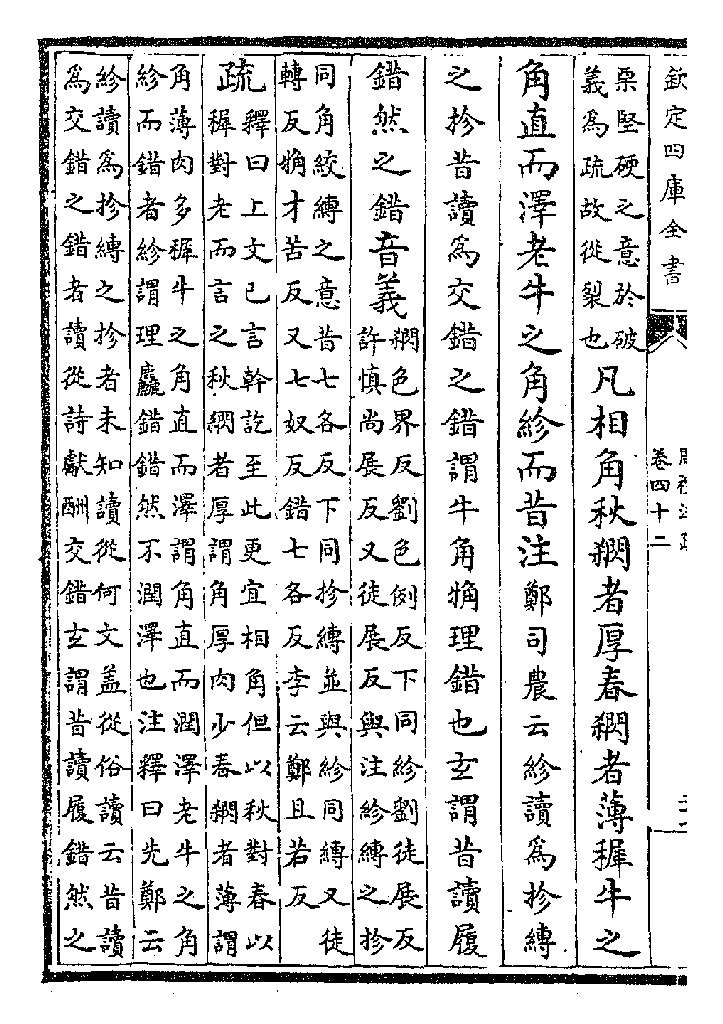 欽定四庫全書
卷四十二
栗堅硬之意於破
義為疏故從裂也
凡相角秋閷者厚春閷者薄稺牛之
角直而澤老牛之角紾而昔注鄭司農云紾讀為抮縛
之抮昔讀為交錯之錯謂牛角觕理錯也玄謂昔讀履
錯然之錯音義
閷色界反劉色例反下同紾劉徒展反
許慎尚展反又徒展反與注紾縛之抮
同角絞縛之意昔七各反下同抮縛並與紾同縛又徒
轉反觕才苦反又七奴反錯七各反李云鄭且若反
疏
釋曰上文已言幹訖至此更宜相角但以秋對春以
稺對老而言之秋閷者厚謂角厚肉少春閷者薄謂
角薄肉多稺牛之角直而澤謂角直而潤澤老牛之角
紾而錯者紾謂理麤錯錯然不潤澤也注釋曰先鄭云
紾讀為抮縛之抮者未知讀從何文盖從俗讀云昔讀
為交錯之錯者讀從詩獻酬交錯玄謂昔讀履錯然之